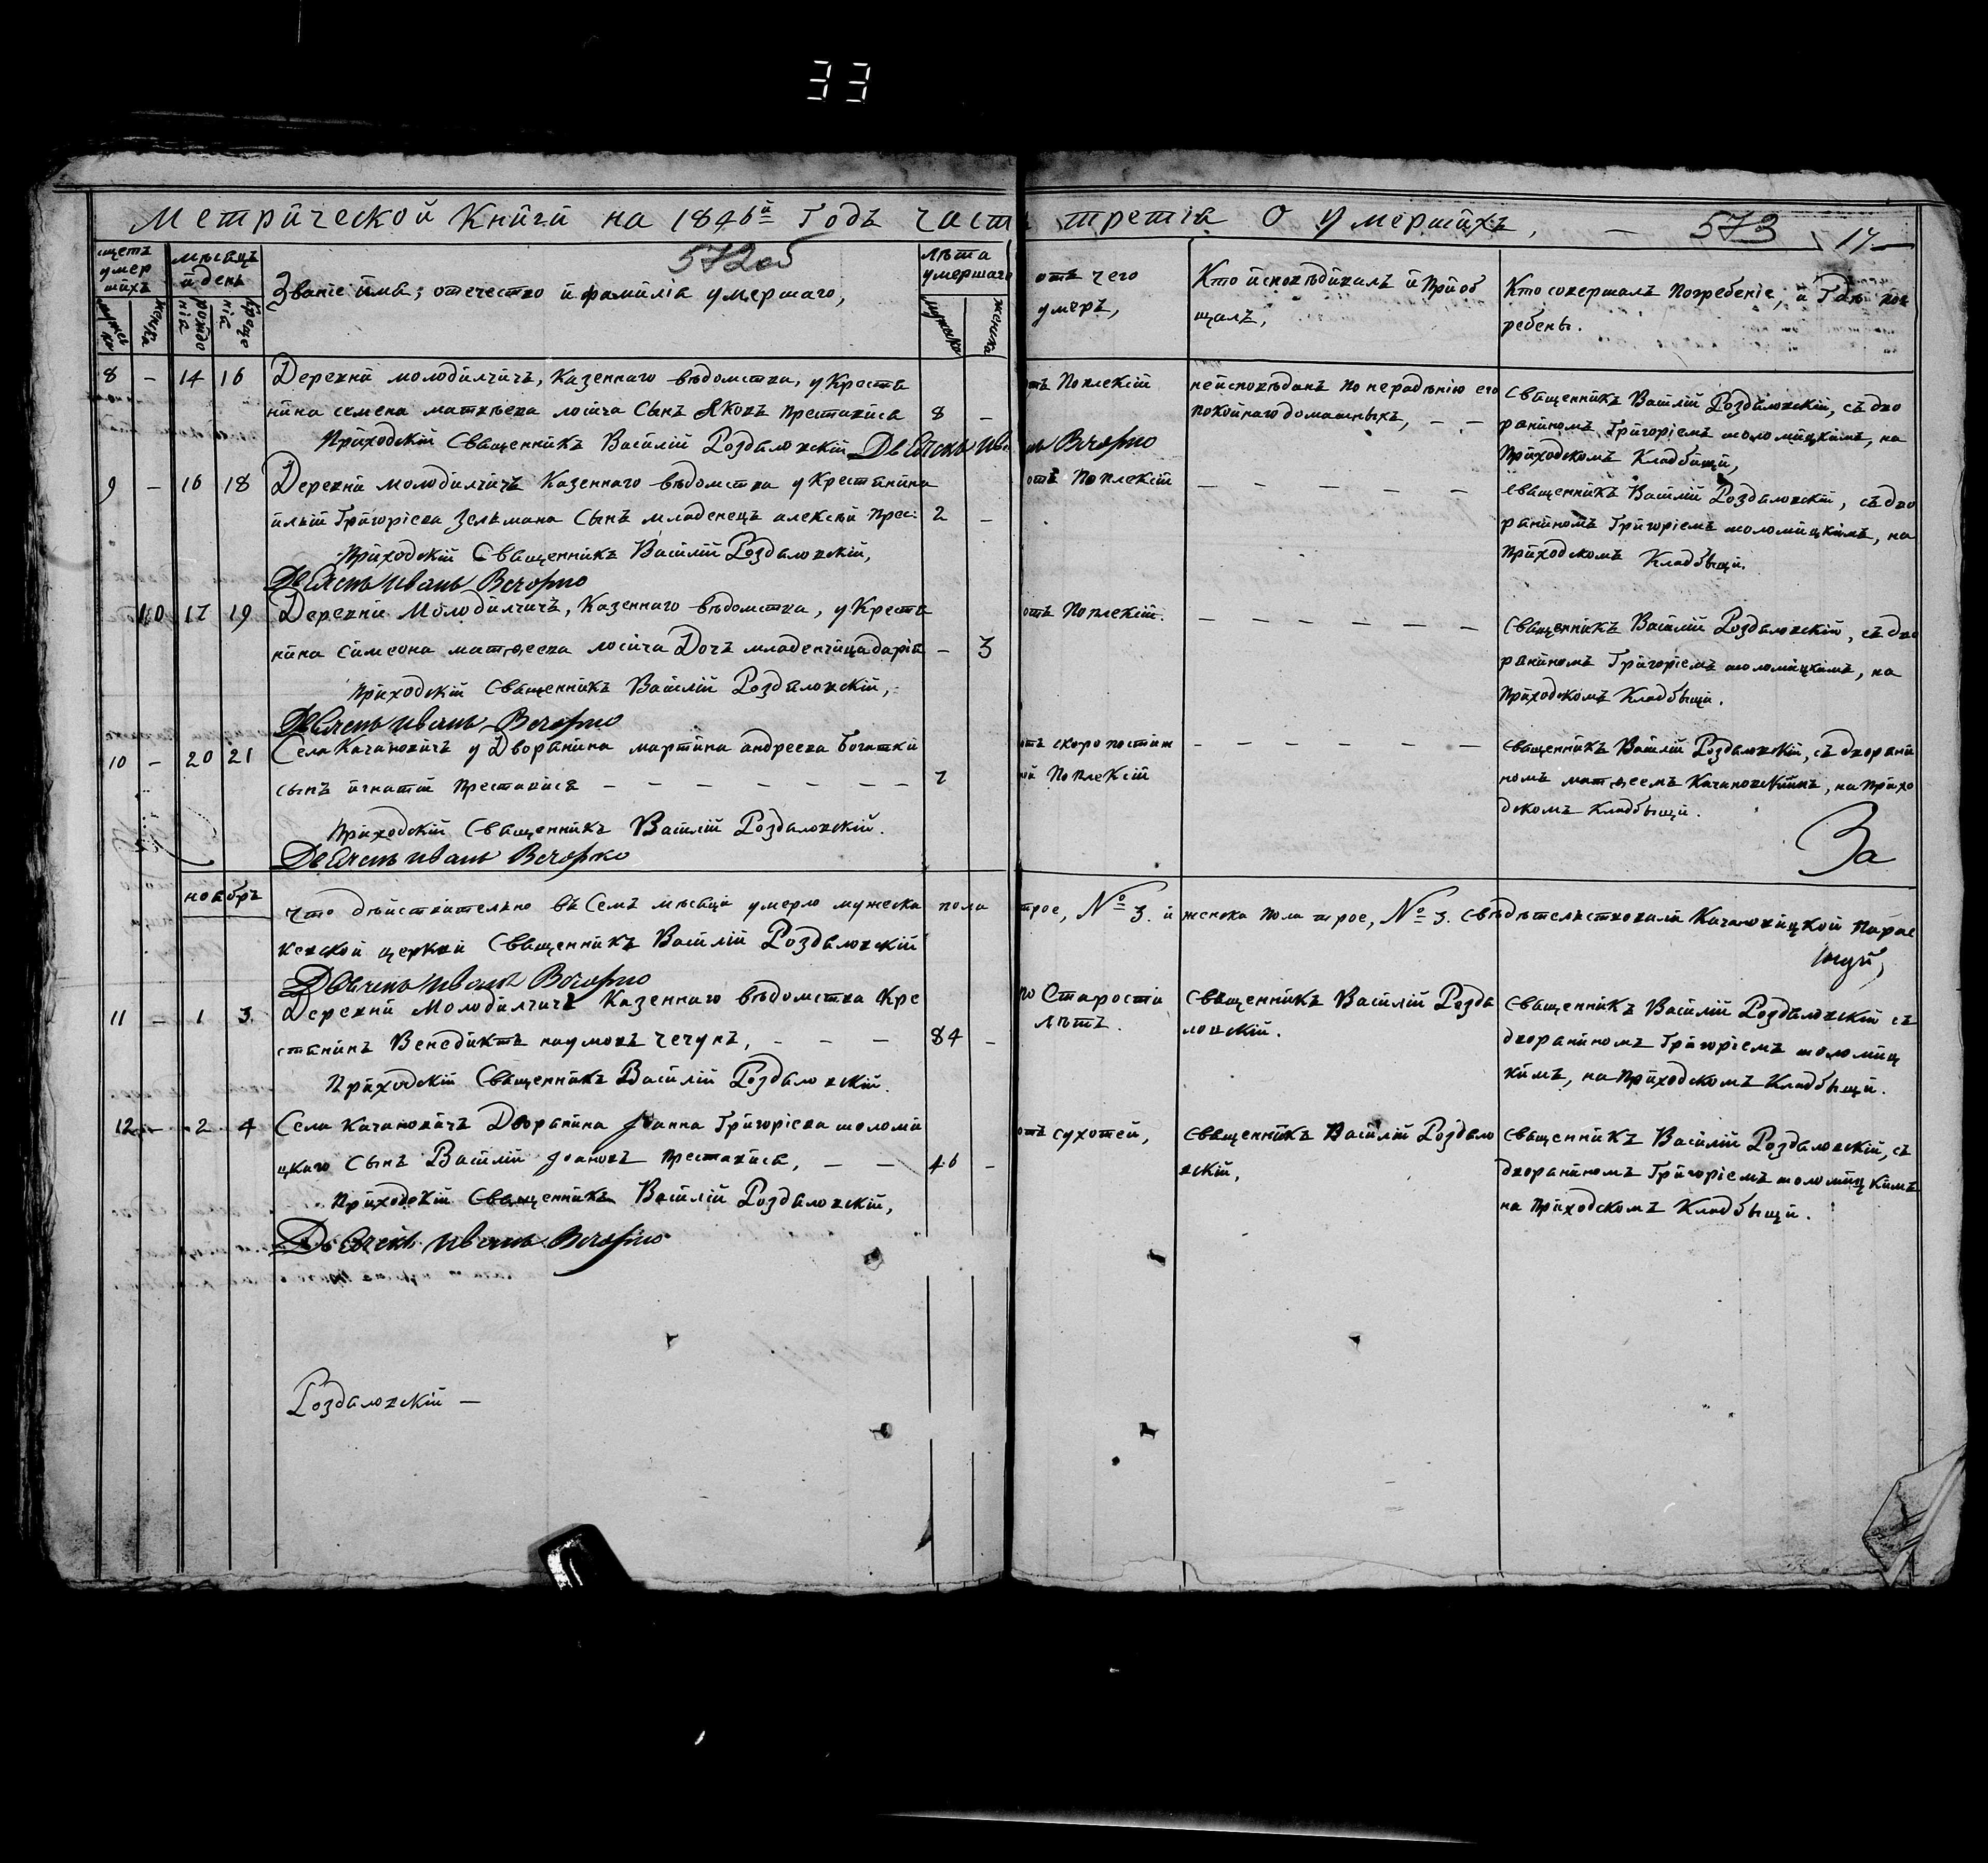 33
Метрической Книги на 1846й Годъ часть третія О Умершихъ, — 573 14
572об
щетъ умер шихъ
мѣсяцъ и день
Званіе имя, отечество и фамилія умершаго,
лѣта умершаго
отъ чего умеръ,
Кто исповѣдивалъ и Приоб щалъ,
Кто совершалъ Погребеніе, и Гдѣ пог ребены.
мужеска
женска
рожде нія
креще нія
мужеска
женска
8 — 14 16 Деревни молодилчичъ, Казеннаго вѣдомства, у Крестя
нина семена матвѣева лосича Сынъ Яковъ Преставися 8 —
Приходскій Священникъ Василій Роздяловскій Дьячекъ Иванъ Вечорко
отъ Поплексіи
неисповѣданъ по нерадѣнію его
покойнаго домашныхъ, — —
Священникъ Василій Роздяловскій, съ дво
раниномъ Григоріемъ шоломицкимъ, на
Приходскомъ Кладбищи,
9 — 16 18 Деревни молодилчичъ Казеннаго вѣдомства у Крестянина
ильи Григоріева Зельмана Сынъ младенецъ алексѣй Прес: 2 —
Приходскій Священникъ Василій Роздяловскій,
Дьячекъ Иванъ Вечорко
отъ Поплексіи
— — — — — —
Священникъ Василій Роздяловскій, съ дво
раниномъ Григоріемъ шоломицкимъ, на
Приходскомъ Кладбыщи.
10 17 19 Деревни Молодилчичъ, Казеннаго вѣдомства, у Крестя
нина Симеона матѳеева лосича Дочь младенчица дарія — 3
Приходскій Священникъ Василій Роздяловскій,
Дьячекъ Иванъ Вечорко
отъ Поплексіи.
— — — — — —
Священникъ Василій Роздяловскій, съ дво
раниномъ Григоріемъ шоломицкимъ, на
Приходскомъ Кладбыщи.
10 — 20 21 Села Качановичъ у Дворянина мартина андреева Богатки
сынъ игнатій Преставися — — — — — — — 2
Приходскій Священникъ Василій Роздяловскій.
Дьячекъ Иванъ Вечорко
отъ скоропостиж
ной Поплексіи
— — — — — —
Священникъ Василій Роздяловскій, съ дворани
номъ матѳеемъ Качановскимъ, на Прихо
дскомъ Кладбыщи.
За
ноябрь
что дѣйствительно въ Семъ мѣсяци умерло мужеска пола трое, № 3. и женска пола трое, № 3. Свѣдѣтельствовали Качановицкой Парас
кевской церкви Священникъ Василій Роздяловскій
Дьячекъ Иванъ Вечорко
11 — 1 3. Деревни Молодилчичъ Казеннаго вѣдомства Кре
стянинъ Венедиктъ наумовъ чечунъ, — — — 84 —
Приходскій Священникъ Василій Роздяловскій.
по Старости
лѣтъ.
Священникъ Василій Роздя
ловскій.
Священникъ Василій Роздяловскій съ
двораниномъ Григоріемъ шоломиц
кимъ, на Приходскомъ Кладбыщи.
12 — 2 4 Села Качановичъ Дворянина Іоанна Григоріева шоломи
цкаго Сынъ Василій Іоановъ Преставися, — — 46 —
Приходскій Священникъ Василій Роздяловскій,
Дьячекъ Иванъ Вечорко
отъ сухотей,
Священникъ Василій Роздяло
вскій,
Священникъ Василій Роздяловскій, съ
двораниномъ Григоріемъ шоломицкимъ
на Приходскомъ Кладбыщи.
Роздяловскій —